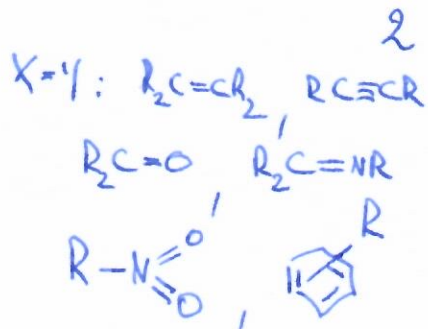 2
X=Y: R₂C=CR₂, RC≡CR
R₂C=O, R₂C=NR
R-N=O, R
O